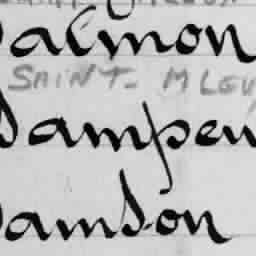 Salmon
SAINT-MLEU
Sampeu
Samson